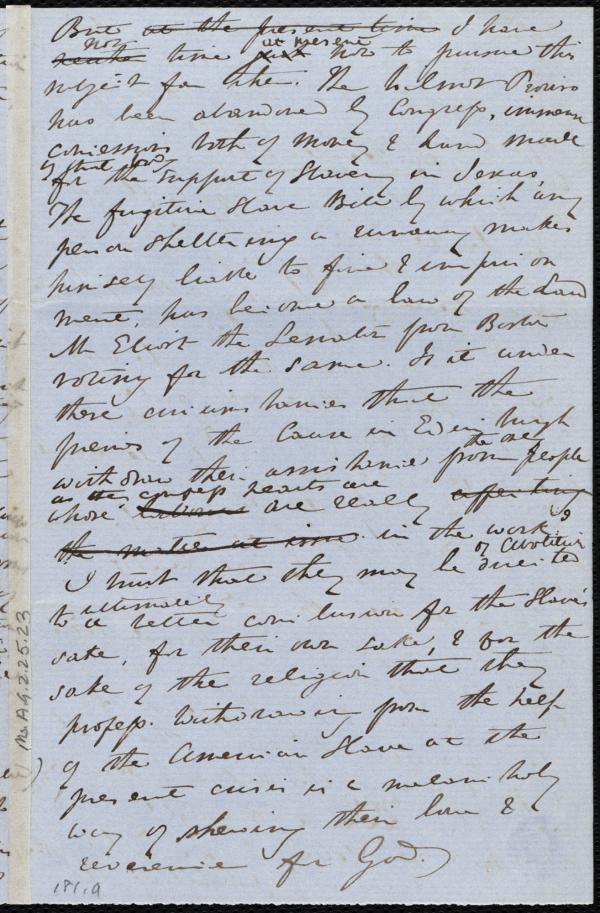 But at the present time I have
not time at present now to pursue this
subject farther. The Wilmot Proviso
has been abandoned by Congress, immense
concessions both of money & land made
by that body
for the support of Slavery in Texas,
The fugitive Slave Bill by which any
person sheltering a runaway makes
himself liable to fine & imprison
ment, has become a law of the Land
Mr Eliot the Senator from Boston
voting for the same. Is it under
these circumstances that the
friends of the Cause in Edinburgh
withdraw their assistance from the only people
whose hearts are are really
the matter at issue in the work
of Abolition
I trust that they may be directed
ultimately
to a better conclusion for the Slave's
sake, for their own sake, & for the
sake of the religion that they
profess. Withdrawing from the help
of the American Slave at the
present crisis is a melancholy
way of shewing their love &
reverence for God.)
Ms A.9.2.25.23
181.9